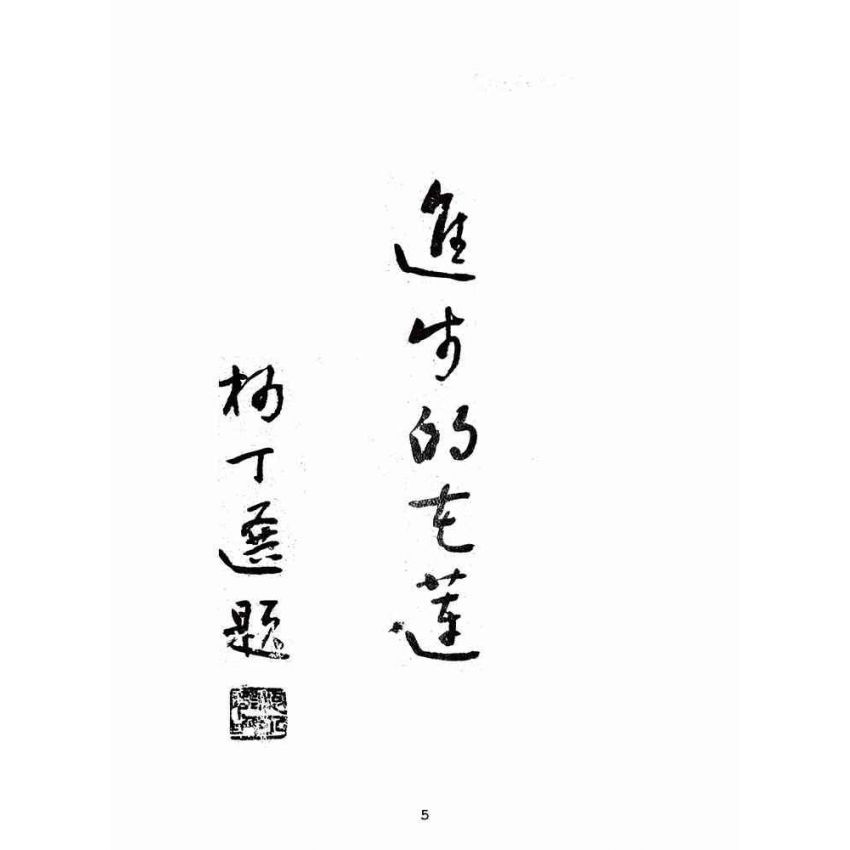 進步的花蓮
柯丁選題
5